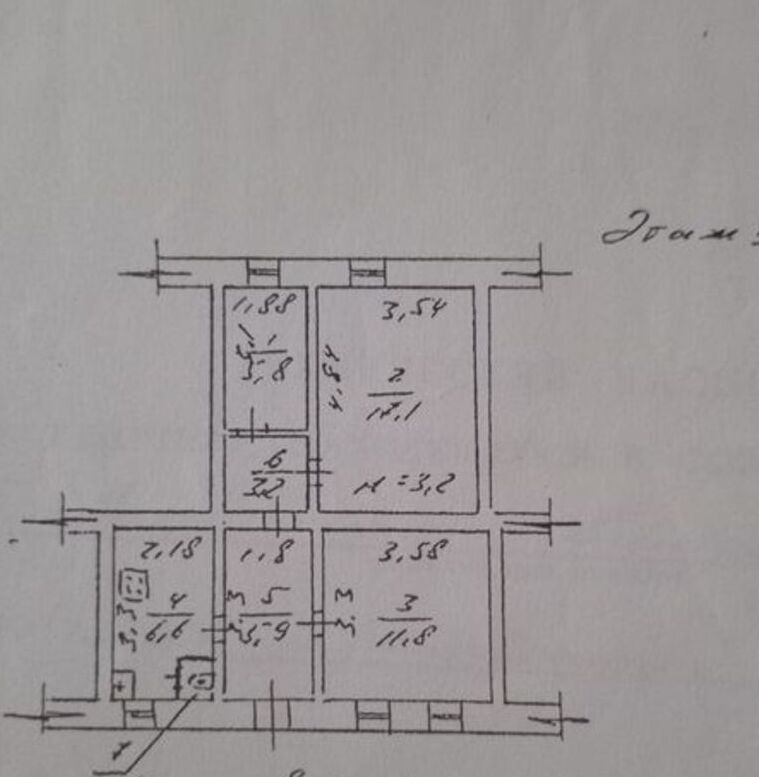 Этаж
1,88
3,54
1
5,8
4,84
2
17,1
6
3,2
н = 3,2
2,18
1,8
3,58
3,3
4
6,6
3,3
5
5,9
3,3
3
11,8
7